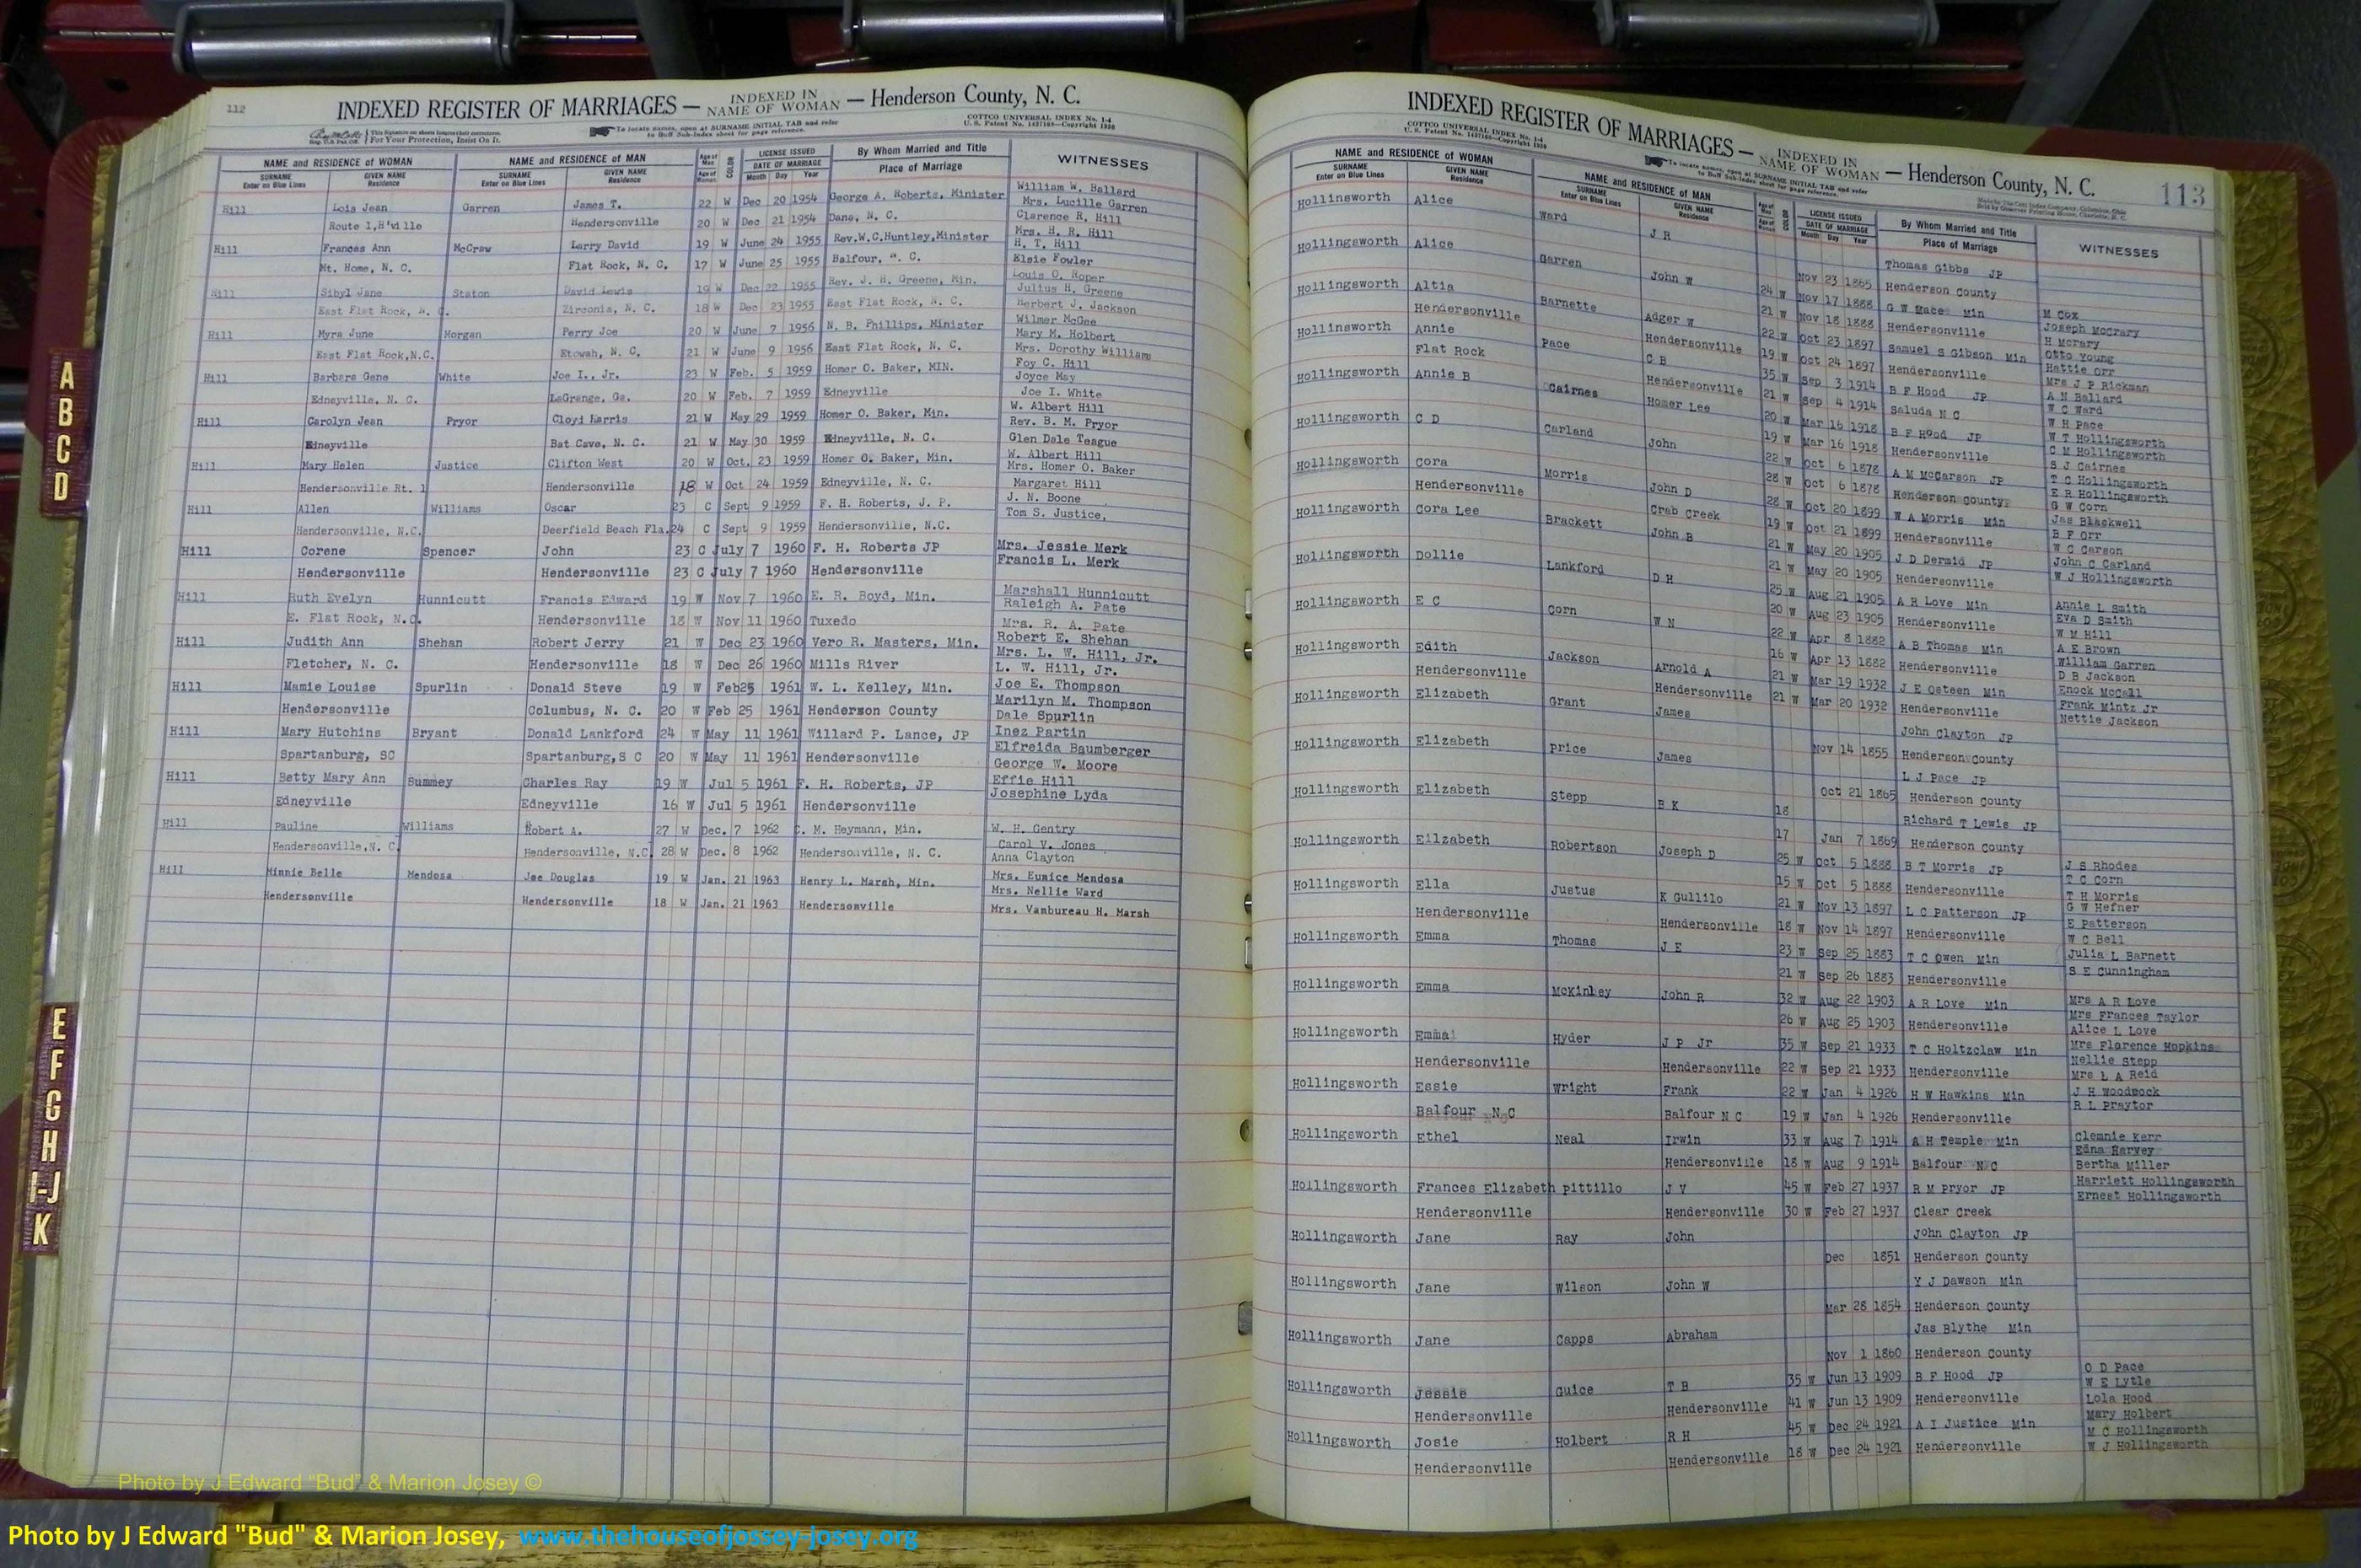 112
INDEXED REGISTER OF MARRIAGES — INDEXED IN NAME OF WOMAN — Henderson County, N. C.
This Signature on sheets insures their correctness. For Your Protection, Insist On It.
To locate names, open at SURNAME INITIAL TAB and refer to Buff Sub-Index sheet for page reference.
COTTCO UNIVERSAL INDEX No. 1-4
U. S. Patent No. 1437169—Copyright 1930
NAME and RESIDENCE OF WOMAN NAME and RESIDENCE OF MAN Age of Man COLOR LICENSE ISSUED By Whom Married and Title WITNESSES
SURNAME Enter on Blue Lines GIVEN NAME Residence SURNAME Enter on Blue Lines GIVEN NAME Residence Age of Woman DATE OF MARRIAGE Month Day Year Place of Marriage
William W. Ballard
Hill Lois Jean Garren James T. 22 W Dec 20 1954 George A. Roberts, Minister Mrs. Lucille Garren
Route 1, H'ville Hendersonville 20 W Dec 21 1954 Dana, N. C. Clarence R. Hill
Mrs. H. R. Hill
Hill Frances Ann McCraw Larry David 19 W June 24 1955 Rev.W.C.Huntley,Minister H. T. Hill
Mt. Home, N. C. Flat Rock, N. C. 17 W June 25 1955 Balfour, N. C. Elsie Fowler
Louis O. Roper
Hill Sibyl Jane Staton David Lewis 19 W Dec 22 1955 Rev. J. H. Greene, Min. Julius H. Greene
East Flat Rock, N. C. Zirconia, N. C. 18 W Dec 23 1955 East Flat Rock, N. C. Herbert J. Jackson
Wilmer McGee
Hill Myra June Morgan Perry Joe 20 W June 7 1956 N. B. Phillips, Minister Mary M. Holbert
East Flat Rock,N.C. Etowah, N. C. 21 W June 9 1956 East Flat Rock, N. C. Mrs. Dorothy Williams
Foy C. Hill
Hill Barbara Gene White Joe I., Jr. 23 W Feb. 5 1959 Homer O. Baker, MIN. Joyce May
Edneyville, N. C. LaGrange, Ga. 20 W Feb. 7 1959 Edneyville Joe I. White
W. Albert Hill
Hill Carolyn Jean Pryor Cloyd Harris 21 W May 29 1959 Homer O. Baker, Min. Rev. B. M. Pryor
Edneyville Bat Cave, N. C. 21 W May 30 1959 Edneyville, N. C. Glen Dale Teague
W. Albert Hill
Hill Mary Helen Justice Clifton West 20 W Oct. 23 1959 Homer O. Baker, Min. Mrs. Homer O. Baker
Hendersonville Rt. 1 Hendersonville 18 W Oct 24 1959 Edneyville, N. C. Margaret Hill
J. N. Boone
Hill Allen Williams Oscar 23 C Sept 9 1959 F. H. Roberts, J. P. Tom S. Justice,
Hendersonville, N.C. Deerfield Beach Fla. 24 C Sept 9 1959 Hendersonville, N.C.
Hill Corene Spencer John 23 C July 7 1960 F. H. Roberts JP Mrs. Jessie Merk
Francis L. Merk
Hendersonville Hendersonville 23 C July 7 1960 Hendersonville
Marshall Hunnicutt
Hill Ruth Evelyn Hunnicutt Francis Edward 19 W Nov 7 1960 E. R. Boyd, Min. Raleigh A. Pate
E. Flat Rock, N.C. Hendersonville 18 W Nov 11 1960 Tuxedo Mrs. R. A. Pate
Robert E. Shehan
Hill Judith Ann Shehan Robert Jerry 21 W Dec 23 1960 Vero R. Masters, Min. Mrs. L. W. Hill, Jr.
Fletcher, N. C. Hendersonville 18 W Dec 26 1960 Mills River L. W. Hill, Jr.
Joe E. Thompson
Hill Mamie Louise Spurlin Donald Steve 19 W Feb25 1961 W. L. Kelley, Min. Marilyn M. Thompson
Hendersonville Columbus, N. C. 20 W Feb 25 1961 Henderson County Dale Spurlin
Inez Partin
Hill Mary Hutchins Bryant Donald Lankford 24 W May 11 1961 Willard P. Lance, JP Elfreida Baumberger
Spartanburg, SC Spartanburg,S C 20 W May 11 1961 Hendersonville George W. Moore
Effie Hill
Hill Betty Mary Ann Summey Charles Ray 19 W Jul 5 1961 F. H. Roberts, JP Josephine Lyda
Edneyville Edneyville 16 W Jul 5 1961 Hendersonville
Hill Pauline Williams Robert A. 27 W Dec. 7 1962 C. M. Heymann, Min. W. H. Gentry
Carol V. Jones
Hendersonville,N. C. Hendersonville, N.C. 28 W Dec. 8 1962 Hendersonville, N. C. Anna Clayton
Hill Minnie Belle Mendosa Joe Douglas 19 W Jan. 21 1963 Henry L. Marsh, Min. Mrs. Eunice Mendosa
Mrs. Nellie Ward
Hendersonville Hendersonville 18 W Jan. 21 1963 Hendersonville Mrs. Vanbureau H. Marsh
A
B
C
D
E
F
G
H
I-J
K
INDEXED REGISTER OF MARRIAGES — INDEXED IN NAME OF WOMAN — Henderson County, N. C. 113
COTTCO UNIVERSAL INDEX No. 1-4
U. S. Patent No. 1437169—Copyright 1930
To locate names, open at SURNAME INITIAL TAB and refer to Buff Sub-Index sheet for page reference.
NAME and RESIDENCE OF WOMAN NAME and RESIDENCE OF MAN LICENSE ISSUED By Whom Married and Title WITNESSES
SURNAME Enter on Blue Lines GIVEN NAME Residence SURNAME Enter on Blue Lines GIVEN NAME Residence DATE OF MARRIAGE Month Day Year Place of Marriage
Hollinsworth Alice Ward J R Thomas Gibbs JP
Nov 23 1865 Henderson County
Hollingsworth Alice Garren John W 24 W Nov 17 1888 G W Mace Min M Cox
Joseph McCrary
21 W Nov 18 1888 Hendersonville H McCrary
Hollingsworth Altia Barnette Adger W 22 W Oct 23 1897 Samuel S Gibson Min Otto Young
Hattie Orr
Hendersonville Hendersonville 19 W Oct 24 1897 Hendersonville Mrs J P Rickman
Hollinsworth Annie Pace C B 35 W Sep 3 1914 B F Hood JP A N Ballard
W C Ward
Flat Rock Hendersonville 21 W Sep 4 1914 Saluda N C W H Pace
Hollingsworth Annie B Cairnes Homer Lee 20 W Mar 16 1918 B F Hood JP W T Hollingsworth
C M Hollingsworth
19 W Mar 16 1918 Hendersonville S J Cairnes
Hollingsworth C D Carland John 22 W Oct 6 1878 A M McCarson JP T C Hollingsworth
E R Hollingsworth
28 W Oct 6 1878 Henderson County G W Corn
Hollingsworth Cora Morris John D 28 W Oct 20 1899 W A Morris Min Jas Blackwell
B F Orr
Hendersonville Crab Creek 19 W Oct 21 1899 Hendersonville W C Carson
Hollingsworth Cora Lee Brackett John B 21 W May 20 1905 J D Dermid JP John C Carland
W J Hollingsworth
21 W May 20 1905 Hendersonville
Hollingsworth Dollie Lankford D H 25 W Aug 21 1905 A R Love Min Annie L Smith
Eva D Smith
20 W Aug 23 1905 Hendersonville W M Hill
Hollingsworth E C Corn W N 22 W Apr 8 1882 A B Thomas Min A E Brown
William Garren
16 W Apr 13 1882 Hendersonville D B Jackson
Hollingsworth Edith Jackson Arnold A 21 W Mar 19 1932 J E Osteen Min Enock McCall
Frank Mintz Jr
Hendersonville Hendersonville 21 W Mar 20 1932 Hendersonville Nettie Jackson
Hollingsworth Elizabeth Grant James John Clayton JP
Nov 14 1855 Henderson County
Hollingsworth Elizabeth Price James L J Pace JP
Oct 21 1865 Henderson County
Hollingsworth Elizabeth Stepp B K 18 Richard T Lewis JP
17 Jan 7 1869 Henderson County
Hollingsworth Eilzabeth Robertson Joseph D 25 W Oct 5 1888 B T Morris JP J S Rhodes
T C Corn
15 W Oct 5 1888 Hendersonville T H Morris
Hollingsworth Ella Justus K Gullilo 21 W Nov 13 1897 L C Patterson JP G W Hefner
E Patterson
Hendersonville Hendersonville 18 W Nov 14 1897 Hendersonville W C Bell
Hollingsworth Emma Thomas J E 23 W Sep 25 1883 T C Owen Min Julia L Barnett
S E Cunningham
21 W Sep 26 1883 Hendersonville
Hollingsworth Emma McKinley John R 32 W Aug 22 1903 A R Love Min Mrs A R Love
Mrs Frances Taylor
26 W Aug 25 1903 Hendersonville Alice L Love
Hollingsworth Emma Hyder J P Jr 35 W Sep 21 1933 T C Holtzclaw Min Mrs Florence Hopkins
Nellie Stepp
Hendersonville Hendersonville 22 W Sep 21 1933 Hendersonville Mrs L A Reid
Hollingsworth Essie Wright Frank 22 W Jan 4 1926 H W Hawkins Min J H Woodmock
R L Praytor
Balfour N C Balfour N C 19 W Jan 4 1926 Hendersonville
Hollingsworth Ethel Neal Irwin 33 W Aug 7 1914 A H Temple Min Clemnie Kerr
Edna Harvey
Hendersonville 18 W Aug 9 1914 Balfour N C Bertha Miller
Hollingsworth Frances Elizabeth Pittillo J V 45 W Feb 27 1937 R M Pryor JP Harriett Hollingsworth
Ernest Hollingsworth
Hendersonville Hendersonville 30 W Feb 27 1937 Clear Creek
Hollingsworth Jane Ray John John Clayton JP
Dec 1851 Henderson County
Hollingsworth Jane Wilson John W Y J Dawson Min
Mar 28 1854 Henderson County
Hollingsworth Jane Capps Abraham Jas Blythe Min
Nov 1 1860 Henderson County
Hollingsworth Jessie Guice T B 35 W Jun 13 1909 B F Hood JP O D Pace
W E Lytle
Hendersonville Hendersonville 41 W Jun 13 1909 Hendersonville Lola Hood
Hollingsworth Josie Holbert R H 45 W Dec 24 1921 A I Justice Min Mary Holbert
M C Hollingsworth
Hendersonville Hendersonville 18 W Dec 24 1921 Hendersonville W J Hollingsworth
Photo by J Edward "Bud" & Marion Josey ©
Photo by J Edward "Bud" & Marion Josey, www.thehouseofjossey-josey.org